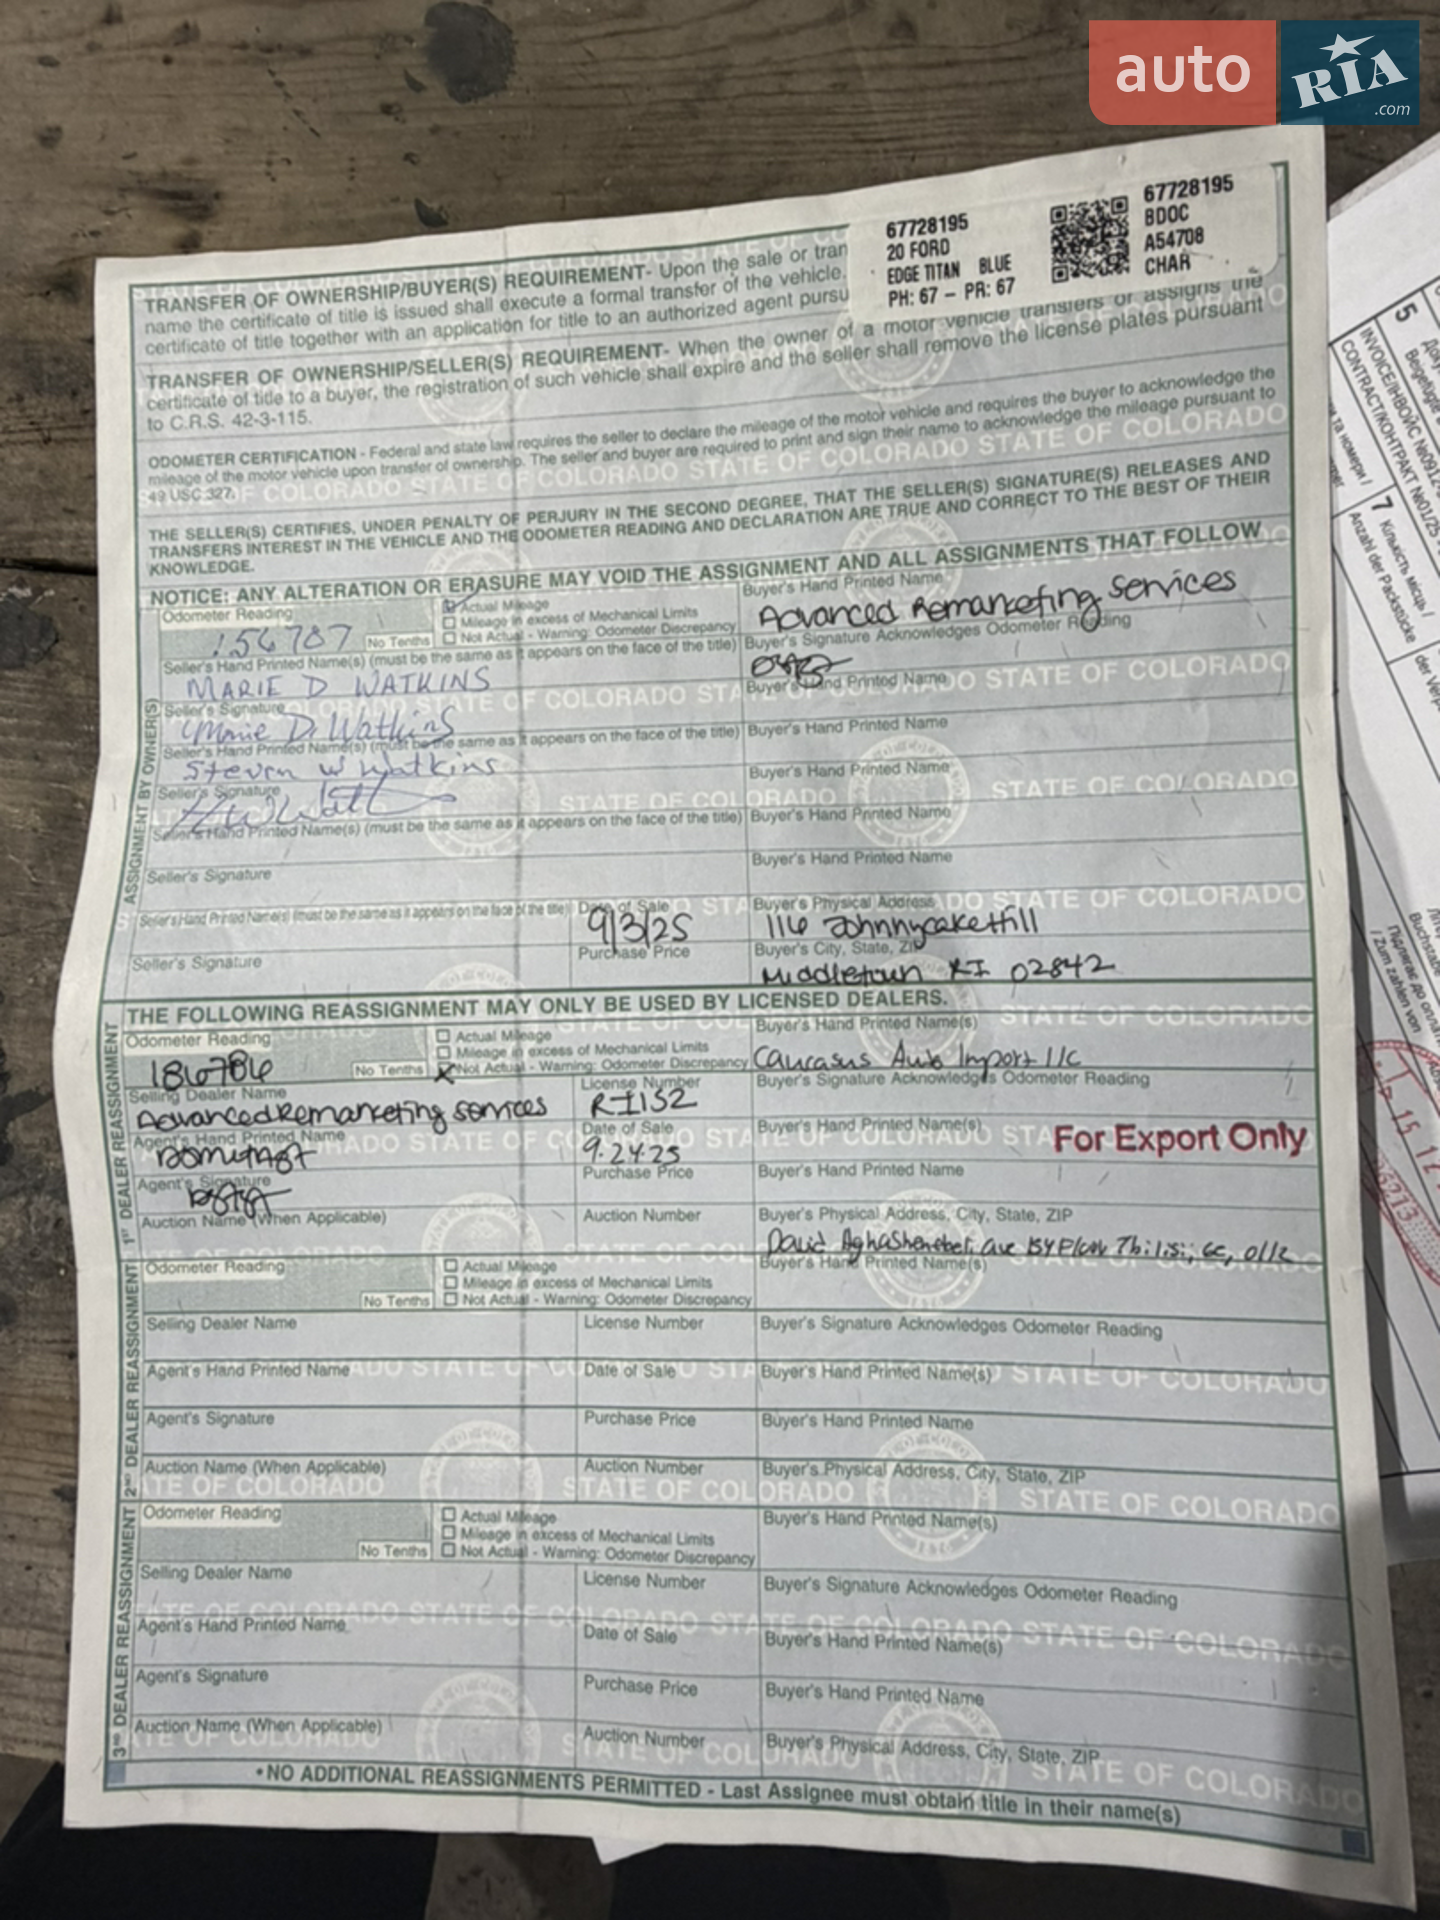 auto RIA .com
67728195
20 FORD
EDGE TITAN BLUE
PH: 67 - PR: 67
67728195
BDOC
A54708
CHAR
TRANSFER OF OWNERSHIP/BUYER(S) REQUIREMENT- Upon the sale or tran
name the certificate of title is issued shall execute a formal transfer of the vehicle.
certificate of title together with an application for title to an authorized agent pursu
TRANSFER OF OWNERSHIP/SELLER(S) REQUIREMENT- When the owner of a motor vehicle transfers or assigns the
certificate of title to a buyer, the registration of such vehicle shall expire and the seller shall remove the license plates pursuant
to C.R.S. 42-3-115.
ODOMETER CERTIFICATION - Federal and state law requires the seller to declare the mileage of the motor vehicle and requires the buyer to acknowledge the
mileage of the motor vehicle upon transfer of ownership. The seller and buyer are required to print and sign their name to acknowledge the mileage pursuant to
49 USC 327.
THE SELLER(S) CERTIFIES, UNDER PENALTY OF PERJURY IN THE SECOND DEGREE, THAT THE SELLER(S) SIGNATURE(S) RELEASES AND
TRANSFERS INTEREST IN THE VEHICLE AND THE ODOMETER READING AND DECLARATION ARE TRUE AND CORRECT TO THE BEST OF THEIR
KNOWLEDGE.
NOTICE: ANY ALTERATION OR ERASURE MAY VOID THE ASSIGNMENT AND ALL ASSIGNMENTS THAT FOLLOW
ASSIGNMENT BY OWNER(S)
Odometer Reading
156787 No Tenths
Actual Mileage
Mileage in excess of Mechanical Limits
Not Actual - Warning: Odometer Discrepancy
Buyer's Hand Printed Name
Advanced Remarketing Services
Seller's Hand Printed Name(s) (must be the same as it appears on the face of the title)
MARIE D WATKINS
Buyer's Signature Acknowledges Odometer Reading
Seller's Signature
Marie D. Watkins
Buyer's Hand Printed Name
Seller's Hand Printed Name(s) (must be the same as it appears on the face of the title)
Steven W Watkins
Buyer's Hand Printed Name
Seller's Signature
Buyer's Hand Printed Name
Seller's Hand Printed Name(s) (must be the same as it appears on the face of the title)
Buyer's Hand Printed Name
Seller's Signature
Buyer's Hand Printed Name
Seller's Hand Printed Name(s) (must be the same as it appears on the face of the title)
Date of Sale
9/3/25
Buyer's Physical Address
116 Johnnycake Hill
Seller's Signature
Purchase Price
Buyer's City, State, ZIP
Middletown RI 02842
THE FOLLOWING REASSIGNMENT MAY ONLY BE USED BY LICENSED DEALERS.
1ST DEALER REASSIGNMENT
Odometer Reading
186786 No Tenths
Actual Mileage
Mileage in excess of Mechanical Limits
X Not Actual - Warning: Odometer Discrepancy
Buyer's Hand Printed Name(s)
Caucasus Auto Import llc
Selling Dealer Name
Advanced Remarketing Services
License Number
RI152
Buyer's Signature Acknowledges Odometer Reading
Agent's Hand Printed Name
Date of Sale
9.24.25
Buyer's Hand Printed Name(s)
For Export Only
Agent's Signature
Purchase Price
Buyer's Hand Printed Name
Auction Name (When Applicable)
Auction Number
Buyer's Physical Address, City, State, ZIP
David Tbilisi, 0112
2ND DEALER REASSIGNMENT
Odometer Reading
No Tenths
Actual Mileage
Mileage in excess of Mechanical Limits
Not Actual - Warning: Odometer Discrepancy
Buyer's Hand Printed Name(s)
Selling Dealer Name
License Number
Buyer's Signature Acknowledges Odometer Reading
Agent's Hand Printed Name
Date of Sale
Buyer's Hand Printed Name(s)
Agent's Signature
Purchase Price
Buyer's Hand Printed Name
Auction Name (When Applicable)
Auction Number
Buyer's Physical Address, City, State, ZIP
3RD DEALER REASSIGNMENT
Odometer Reading
No Tenths
Actual Mileage
Mileage in excess of Mechanical Limits
Not Actual - Warning: Odometer Discrepancy
Buyer's Hand Printed Name(s)
Selling Dealer Name
License Number
Buyer's Signature Acknowledges Odometer Reading
Agent's Hand Printed Name
Date of Sale
Buyer's Hand Printed Name(s)
Agent's Signature
Purchase Price
Buyer's Hand Printed Name
Auction Name (When Applicable)
Auction Number
Buyer's Physical Address, City, State, ZIP
•NO ADDITIONAL REASSIGNMENTS PERMITTED - Last Assignee must obtain title in their name(s)
STATE OF COLORADO
5
INVOICE/ІНВОЙС №0912
CONTRACT/КОНТРАКТ №01/25
7 Кількість місць /
Anzahl der Packstücke
Підлягає до оплати
/ Zum zahlen von